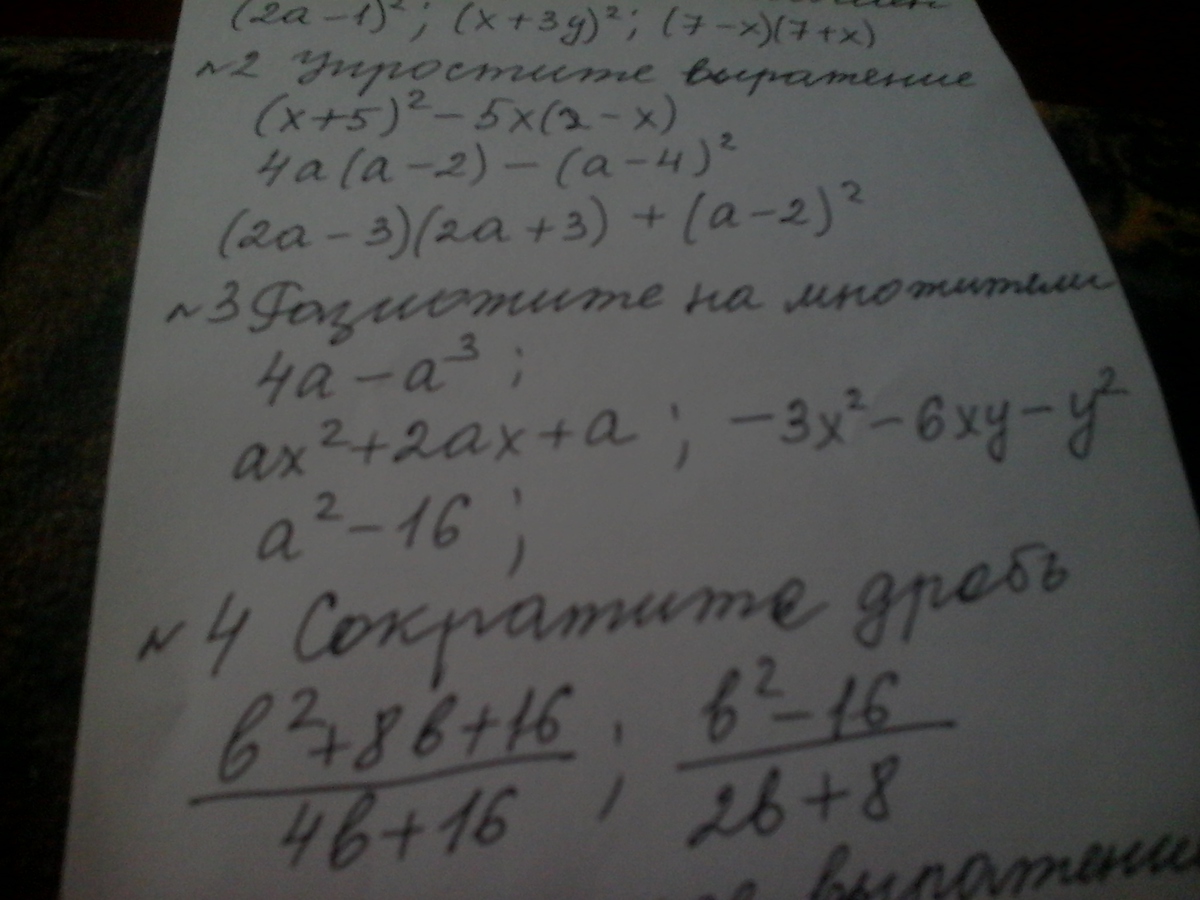 (2a-1)²; (x+3y)²; (7-x)(7+x)
№2 Упростите выражение
(x+5)²-5x(2-x)
4a(a-2)-(a-4)²
(2a-3)(2a+3)+(a-2)²
№3 Разложите на множители
4a-a³;
ax²+2ax+a; -3x²-6xy-y²
a²-16;
№4 Сократите дробь
b²+8b+16 / 4b+16 ; b²-16 / 2b+8
выражение